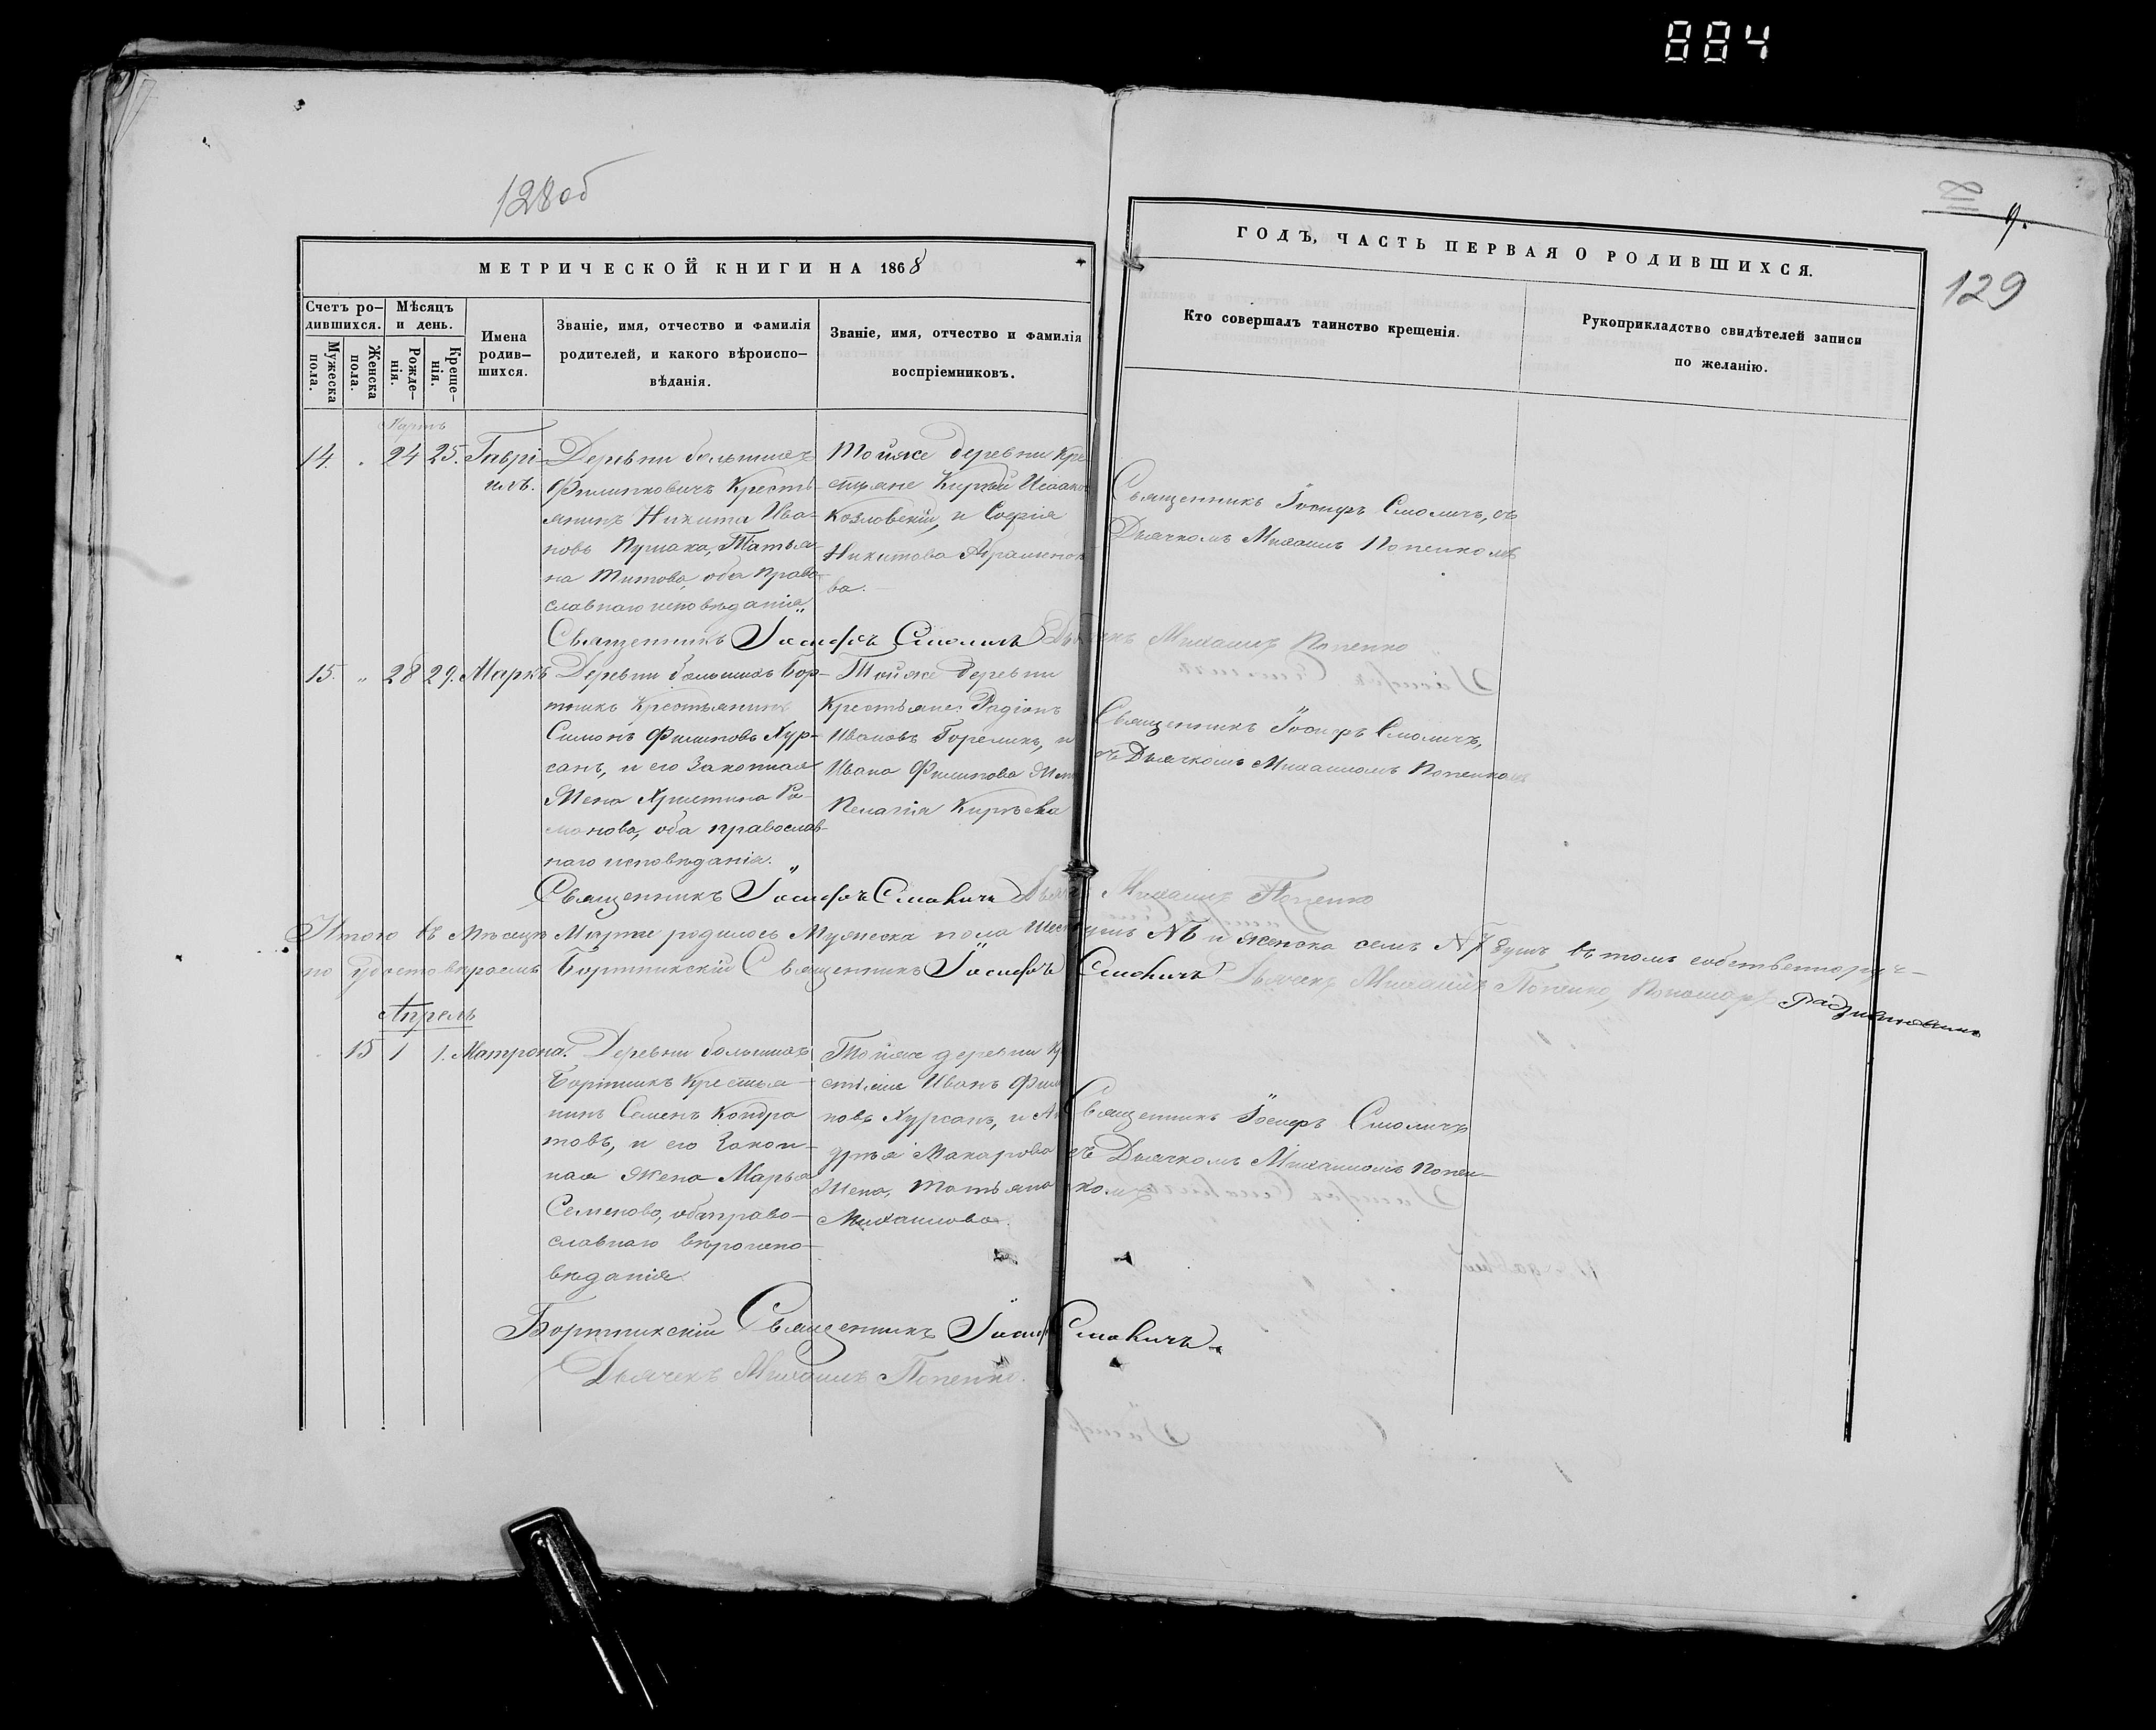 884
128об
9.
129
МЕТРИЧЕСКОЙ КНИГИ НА 1868
ГОДЪ, ЧАСТЬ ПЕРВАЯ О РОДИВШИХСЯ.
Счетъ ро-
дившихся.
Мужеска
пола.
Женска
пола.
Мѣсяцъ
и день.
Рожде-
нія.
Креще-
нія.
Имена
родив-
шихся.
Званіе, имя, отчество и фамилія
родителей, и какого вѣроиспо-
вѣданія.
Званіе, имя, отчество и фамилія
воспріемниковъ.
Кто совершалъ таинство крещенія.
Рукоприкладство свидѣтелей записи
по желанію.
Мартъ
14. " 24 25. Гаврі-
илъ.
Деревни большихъ
Филиповичъ Кресть-
янинъ Никита Ива-
новъ Татья-
на Титова, оба право-
славнаго исповѣданія.
Тойже деревни Кре
стьяне Исаако
Козловскій, и Софія
Никитова Абраменко
ва.
Священникъ Іосифъ Смоличъ, съ
Дьячкомъ Михаилъ Попенкомъ
Священникъ Іосифъ Смоличъ Дьячекъ Михаилъ Попенко
15. " 28 29. Маркъ
Деревни большихъ Бор-
тникъ Крестьянинъ
Симонъ Филиповъ Хур-
санъ, и его Законная
Жена Христина Ро-
манова, оба православ-
наго исповѣданія.
Тойже деревни
Крестьяне: Родіонъ
Ивановъ Гореликъ, и
Ивана Филипова Жена
Пелагія Кирѣева
Священникъ Іосифъ Смоличъ,
съ Дьячкомъ Михаиломъ Попенкомъ
Священникъ Іосифъ Смоличъ Дьячекъ Михаилъ Попенко
Итого въ Мѣсяцѣ Мартѣ родилось Мужеска пола Шесть душъ №6 и женска семь №7 душъ въ томъ собственноруч-
но удостовѣряемъ Бортникскій Священникъ Іосифъ Смоличъ Дьячекъ Михаилъ Попенко, Пономарь
Апрель
15 1 1. Матрона.
Деревни большихъ
Бортникъ Крестья-
нинъ Семенъ Кондра
товъ, и его Закон-
ная Жена Марья
Семенова, оба право-
славнаго вѣроиспо-
вѣданія.
Тойже деревни Кр
стьяне Иванъ Фили
повъ Хурсанъ, и Ан
дрѣя Макарова
Жена, Татьяна
Михаилова.
Священникъ Іосифъ Смоличъ
съ Дьячкомъ Михаиломъ Попен-
комъ
Бортникскій Священникъ Іосифъ Смоличъ.
Дьячекъ Михаилъ Попенко.